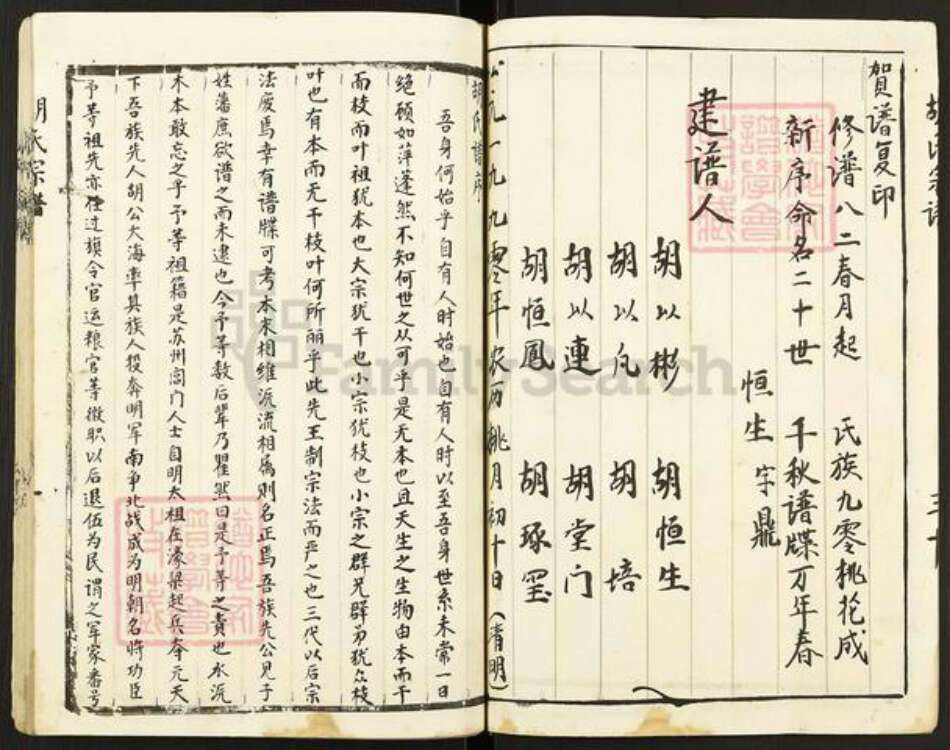 胡氏宗譜
賀譜复印
修谱八二春月起 氏族九零桃花成
新序命名二十世 千秋谱牒万年春
恒生字鼎
建谱人
胡以彬 胡恒生
胡以凡 胡培
胡以連 胡堂门
胡恒鳳 胡琢玺
公元一九九零年农历桃月初十日(清明)
胡氏谱序
吾身何始乎自有人时始也自有人时以至吾身世系未常一日
绝顾如萍蓬然不知何世之从可乎是无本也且天生之生物由本而干
而枝而叶祖犹本也大宗犹干也小宗犹枝也小宗之群兄群弟犹众枝
叶也有本而无干枝叶何所丽乎此先王制宗法而严之也三代以后宗
法废焉幸有谱牒可考本末相维派流相属则名正焉吾族先公见子
姓藩庶欲谱之而未逮也今予等数后辈乃瞿然曰是予等之責也水流
木本敢忘之乎予等祖籍是苏州阊门人士自明太祖在濠梁起兵奉元天
下吾族先人胡公大海率其族人投奔明军南争北战成为明朝名将功臣
予等祖先亦任过旗令官运粮官等微职以后退伍为民谓之军家番号
胡氏宗譜
FamilySearch